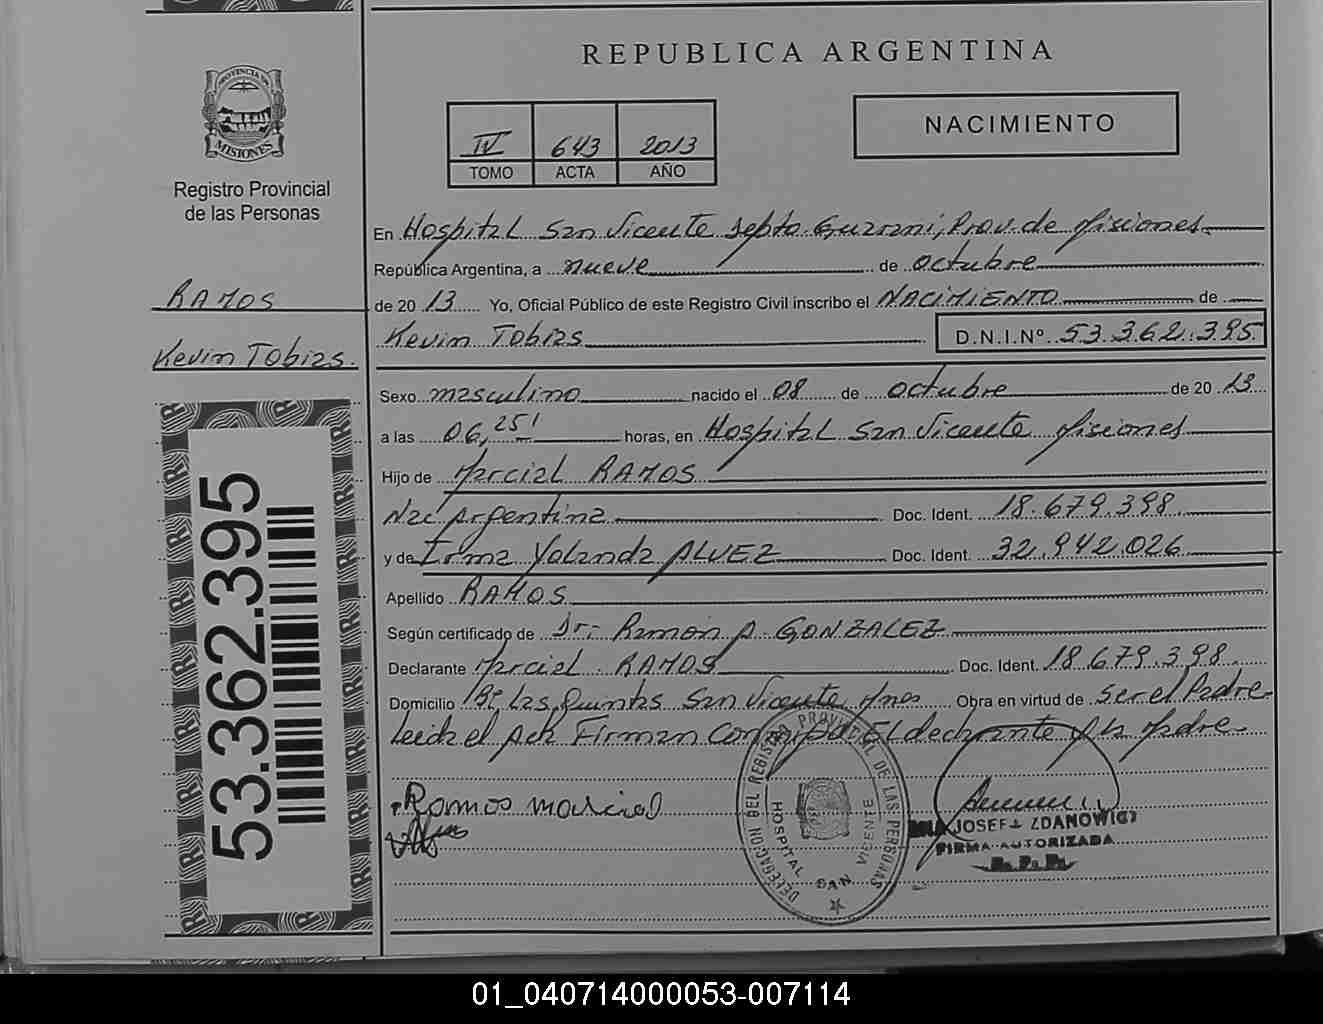 REPUBLICA ARGENTINA
PROVINCIA DE
MISIONES
Registro Provincial
de las Personas
IV 643 2013
TOMO ACTA AÑO
NACIMIENTO
En Hospital San Vicente Depto Guarani, Prov. de Misiones
República Argentina, a nueve de octubre
RAMOS
de 20 13 Yo, Oficial Público de este Registro Civil inscribo el NACIMIENTO de
Kevin Tobias
Kevin Tobias D.N.I.Nº 53.362.395
Sexo masculino nacido el 08 de octubre de 20 13
a las 06,25' horas, en Hospital San Vicente Misiones
Hijo de Marcial RAMOS
Nac Argentina Doc. Ident. 18.679.398
y de Irma Yolanda ALVEZ Doc. Ident. 32.942.026
Apellido RAMOS
Según certificado de Dr. Ramón A. GONZALEZ
Declarante Marcial RAMOS Doc. Ident. 18.679.398
Domicilio Bº Las Quintas San Vicente Mnes Obra en virtud de Ser el Padre
Leida el Acta Firman Conmigo El declarante y la Madre
Ramos marcial
DELEGACION DEL REGISTRO PROVINCIAL DE LAS PERSONAS
HOSPITAL SAN VICENTE
JOSEFA ZDANOWICZ
FIRMA AUTORIZADA
R. P. P.
53.362.395
01_040714000053-007114